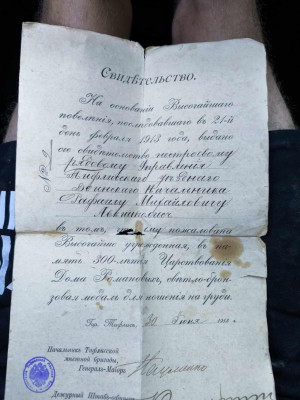 Свидѣтельство.
На основаніи Высочайшаго
повелѣнія, послѣдовавшаго въ 21-й
день февраля 1913 года, выдано
сіе свидѣтельство нестроевому
рядовому Управленія
уѣзднаго
Воинскаго Начальника
Михайловичу
въ томъ, что ему пожалована
Высочайше учрежденная, въ па-
мять 300-лѣтія Царствованія
Дома Романовыхъ, свѣтло-брон-
зовая медаль для ношенія на груди.
Гор. Тифлисъ. 30 Іюня 191
Начальникъ Тифлисской
мѣстной бригады,
Генералъ-Маіоръ
Дежурный Штабъ-